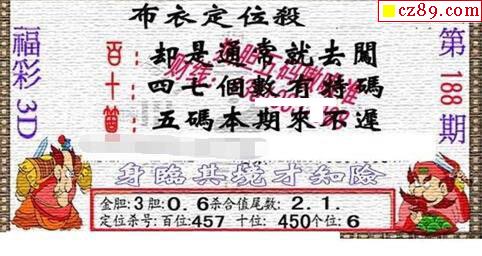 cz89.com
布衣定位殺
福彩3D
第188期
百:却是通常就去闖
十:四七個數有特碼
五碼本期來不遲
身臨其境才知險
金胆:3胆:0.6杀合值尾数:2.1.
定位杀号:百位:457 十位:450个位:6